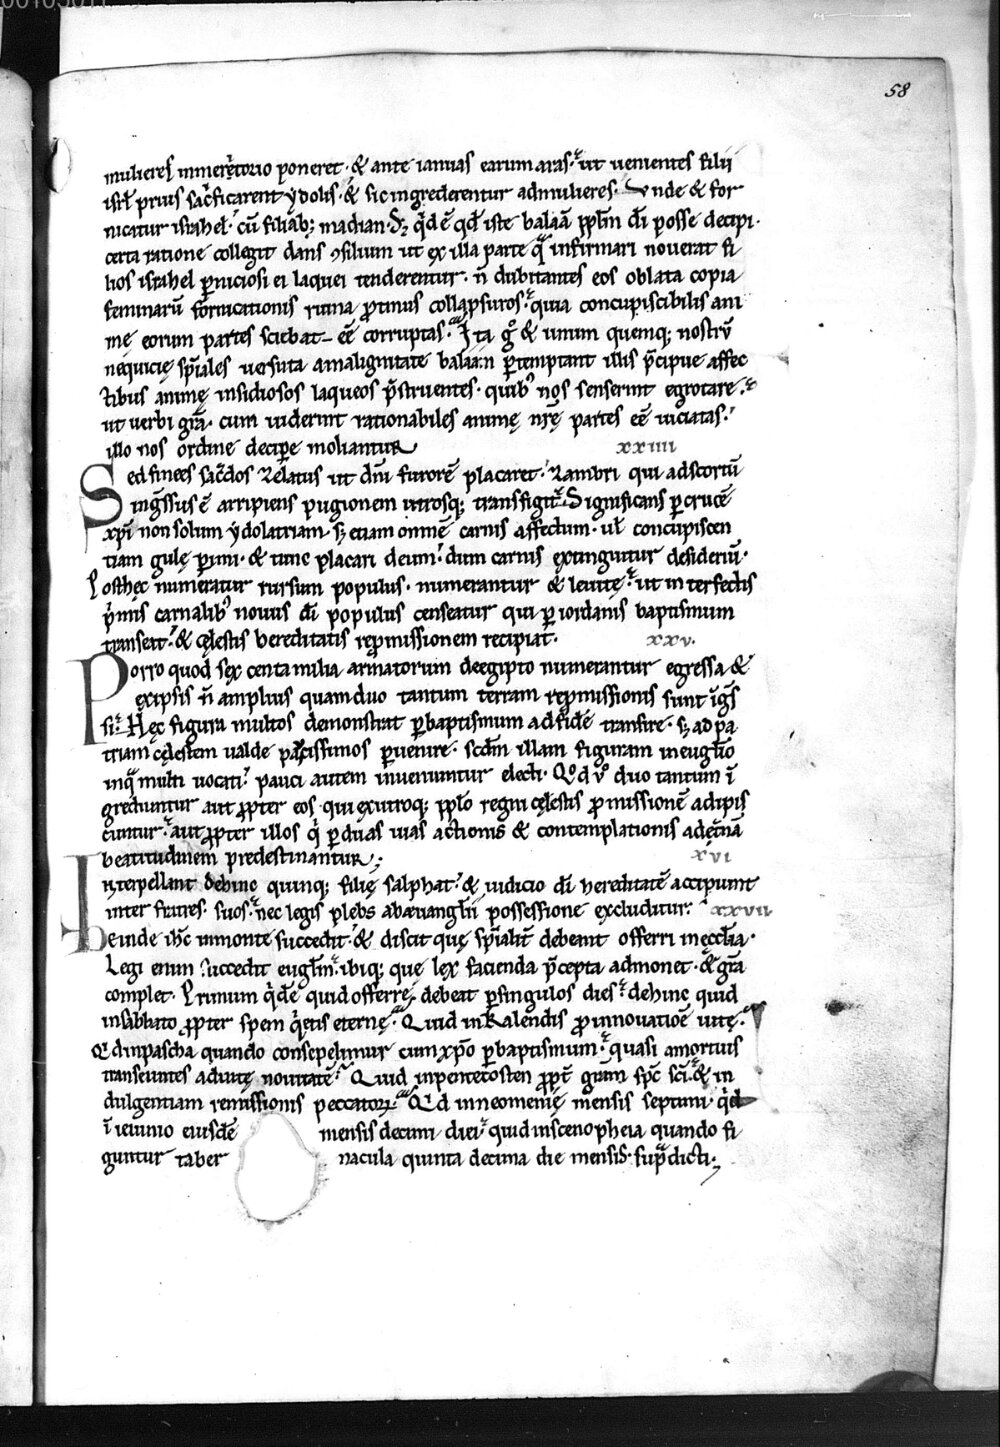 58
mulieres inmeretorio poneret · & ante ianuas earum aras · ut uenientes filii
isrl prius sacficarent ydolis · & sic ingrederentur admulieres · Vnde & for
nicatur israhel · cū filiab; madian · Sȝ qd̄ ē qd̄ iste balaā ppl̄m dī posse decipi ·
certa ratione collegit dans ↄsilium ut ex illa parte qua infirmari nouerat fi
lios israhel p̱niciosi ei laquei tenderentur · n̄ dubitantes eos oblata copia
feminarū fornicationis ruina p̱tinus collapsuros · quia concupiscibilis ani
mę eorum partes sciebat eē corruptas · Ita gº & unum quemq; nostrū
nequicię spīales uersuta amalignitate balaan p̱temptant illis p̄cipue affec
tibus animę insidiosos laqueos p̄struentes · quib; nos senserint egrotare ·
ut uerbi grā · cum uiderint rationabiles animę nr̄ę partes eē uiciatas ·
illo nos ordine decipe moliantur xxiiii
Sed finees sac̄dos zelatus ut dm̄ furorē placaret · Zambri qui adscortū
ingssus ē arripiens pugionem utrosq; transfigit · Significans p̱ crucē
xpī non solum ydolatriam · sȝ etiam omnē carnis affectum · ul̄ concupiscen
tiam gulę p̱imi · & tunc placari deum · dum carnis extinguitur desideriū ·
Posthęc numeratur rursum populus · numerantur & leuitę · ut interfectis
pmis carnalib; nouus dī populus censeatur qui p̱ iordanis baptismum
transeat · & cęlestis hereditatis repmissionem recipiat · xxv ·
Porro quod sex centa milia armatorum deegipto numerantur egressa &
exipsis n̄ amplius quam duo tantum terram repmissionis sunt īgs
si · Hęc figura multos demonstrat p̱ baptismum adfidē transire · sȝ ad pa
triam cęlestem ualde paucissimos p̱uenire · scdm̄ illam figuram in euglīo
inqua multi uocati · pauci autem inueniuntur electi · Qd̄ uº duo tantum ī
grediuntur aut ppter eos · qui exutroq; pplo regni cęlestis p̱missionē adipis
cuntur · aut ppter illos q̄ p̱ duas uias actionis & contemplationis adętnā
beatitudinem predestinantur; xvi
Interpellant dehinc quinq; filię salphat · & iudicio dī hereditatē accipiunt
inter fratres suos · nec legis plebs abaeuanglīi possessione excluditur · xxvii
Deinde ihc̄ inmonte succedit · & discit quę spīalit̄ debeant offerri inecclīa ·
Legi enim succedit euglm̄ · ibiq; que lex facienda p̄cepta admonet · & grā
complet · Primum qd̄ē quid offerre debeat p̱ singulos dies · dehinc quid
insabbato ppter spem qetis eternę · Quid inkalendis p̱ innouatioē uitę ·
Qd inpascha quando consepelimur cum xpo p̱ baptismum · quasi amortuis
transeuntes aduitę nouitatē · Quid inpentecosten ppt̄ gram spc̄ scī · & in
dulgentiam remissionis peccatorꝫ · Qd inneomenię mensis septimi · qd
ī ieiunio eiusdē mensis decimi diei · quid inscenopheia quando fi
guntur taber nacula quinta decima die mensis · supdicti ·